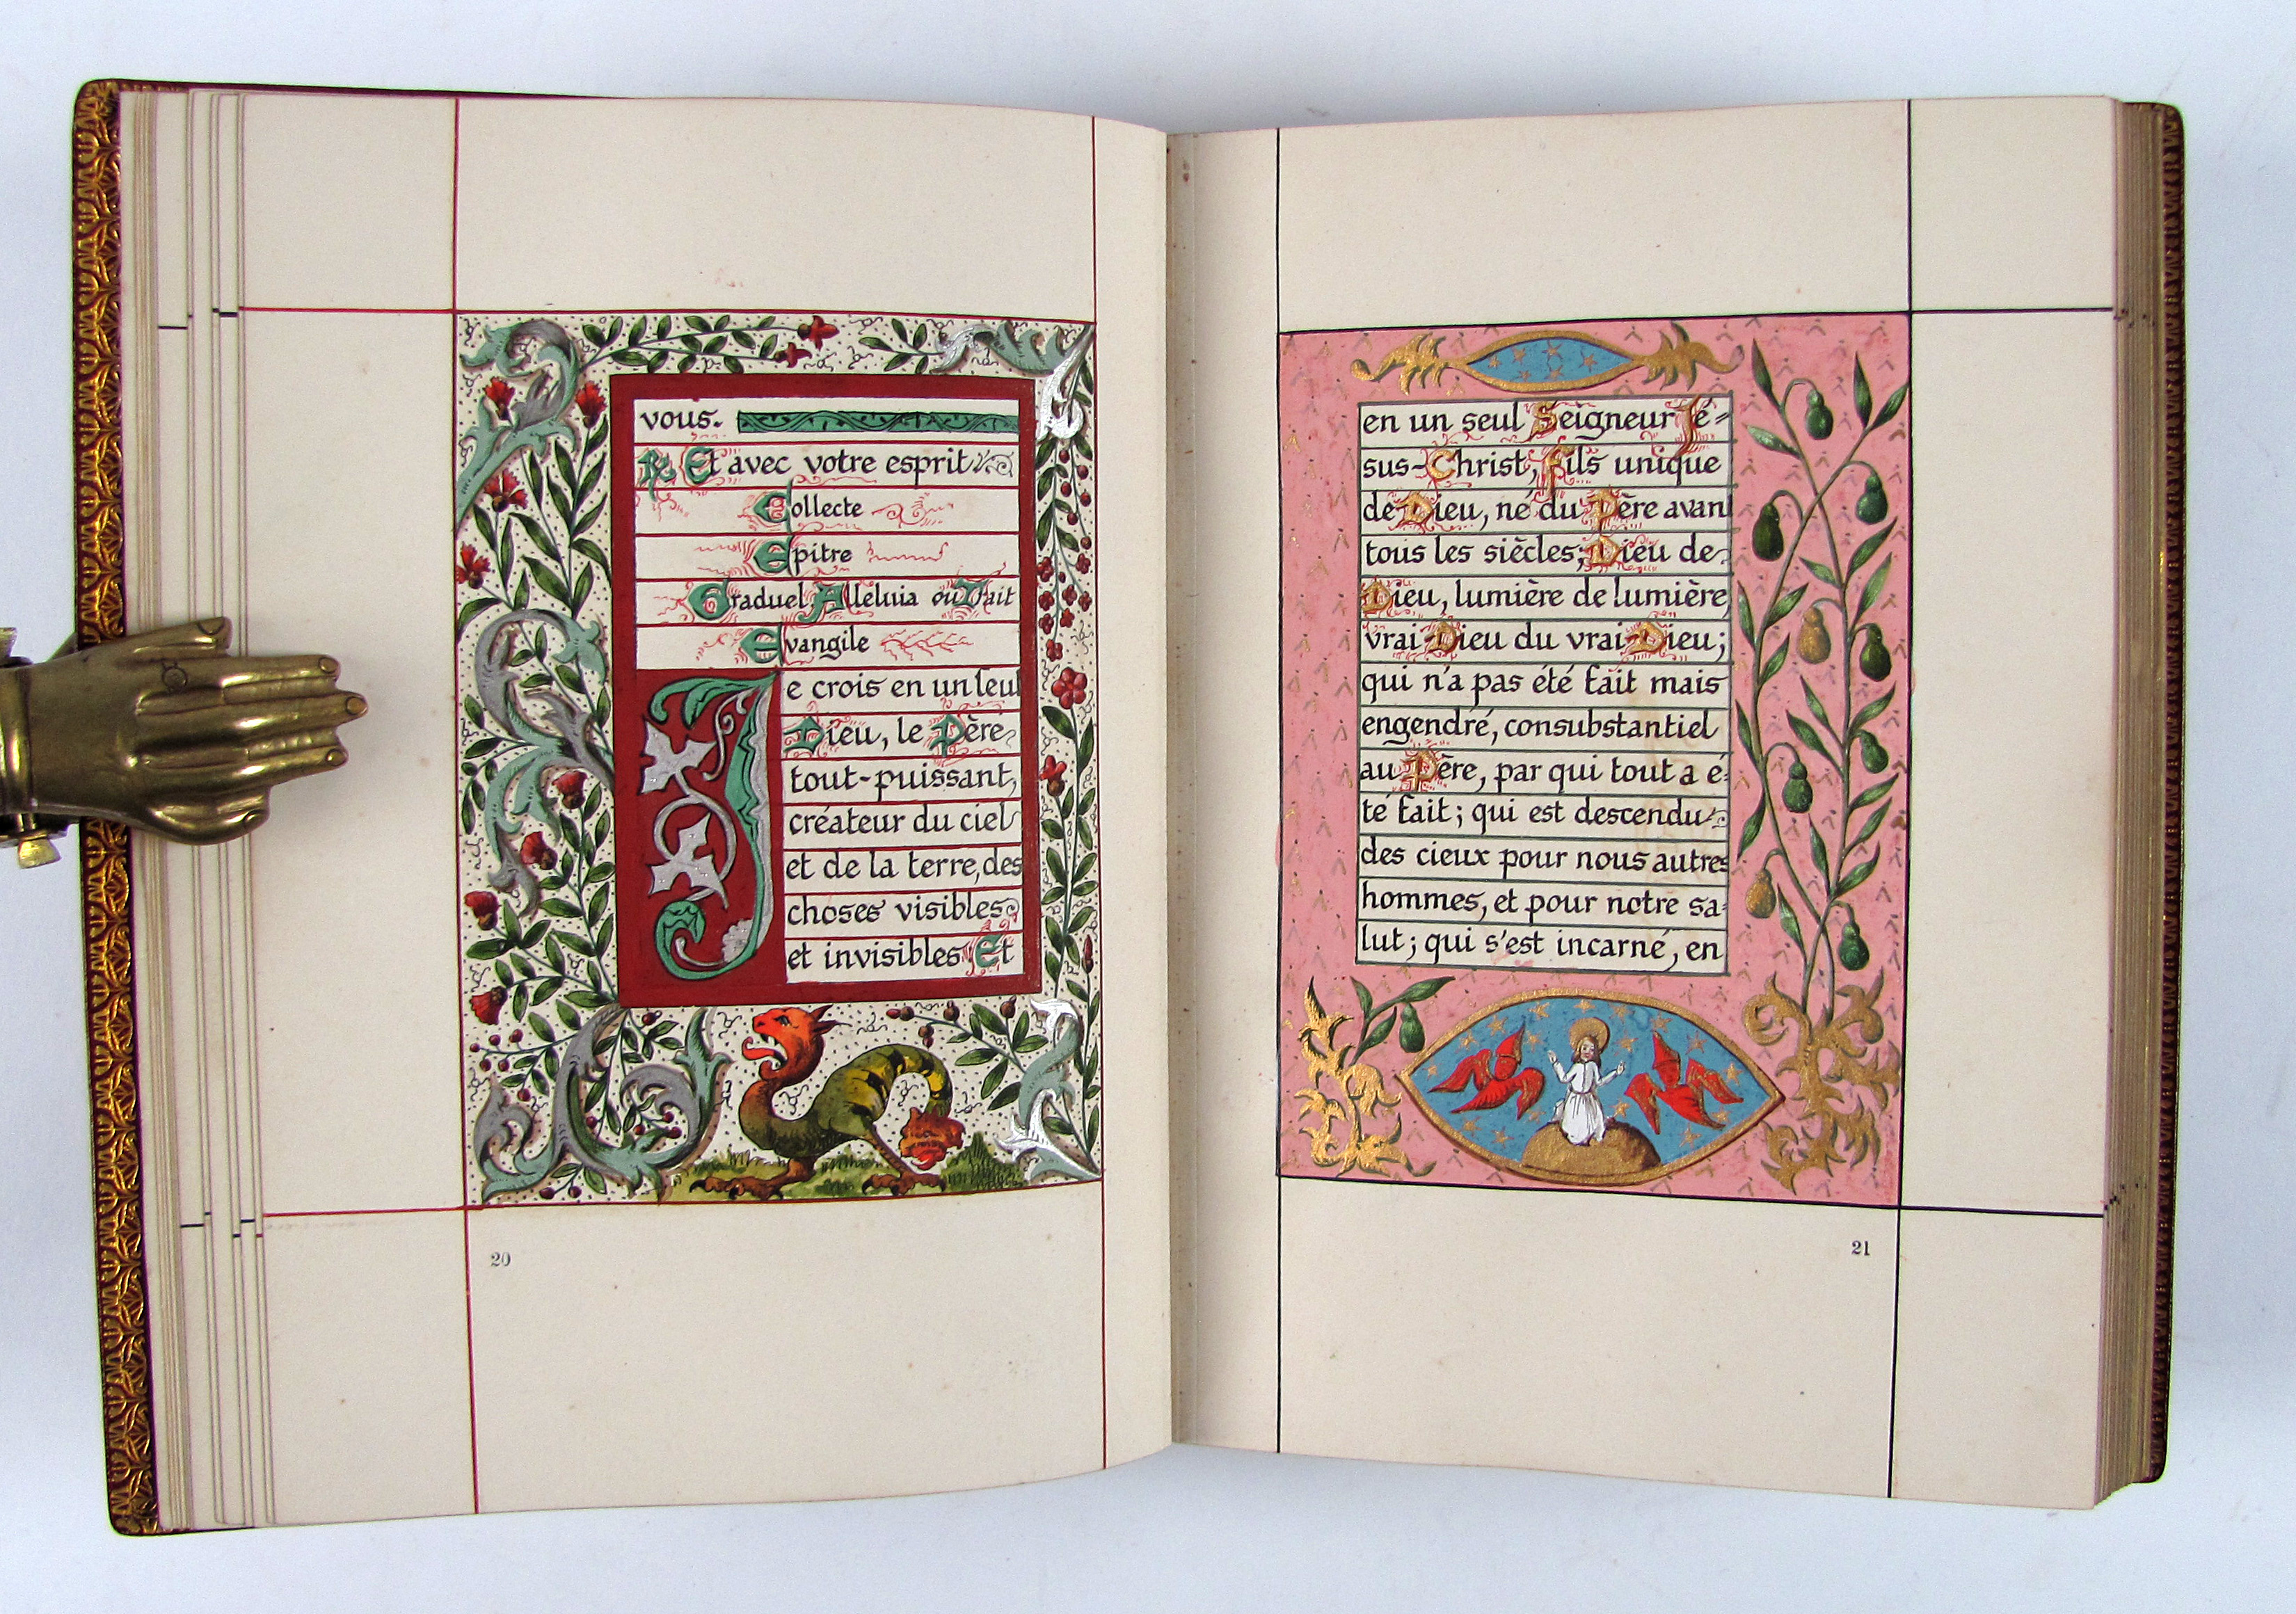 vous.
℟. Et avec votre esprit
Collecte
Epitre
Graduel, Alleluia ou Trait
Evangile
Je crois en un seul
Dieu, le Père
tout-puissant,
créateur du ciel
et de la terre, des
choses visibles
et invisibles Et
20
en un seul Seigneur Jé=
sus-Christ, Fils unique
de Dieu, né du Père avant
tous les siècles; Dieu de
Dieu, lumière de lumière
vrai Dieu du vrai Dieu;
qui n'a pas été fait mais
engendré, consubstantiel
au Père, par qui tout a é-
té fait; qui est descendu
des cieux pour nous autres
hommes, et pour notre sa-
lut; qui s'est incarné, en
21